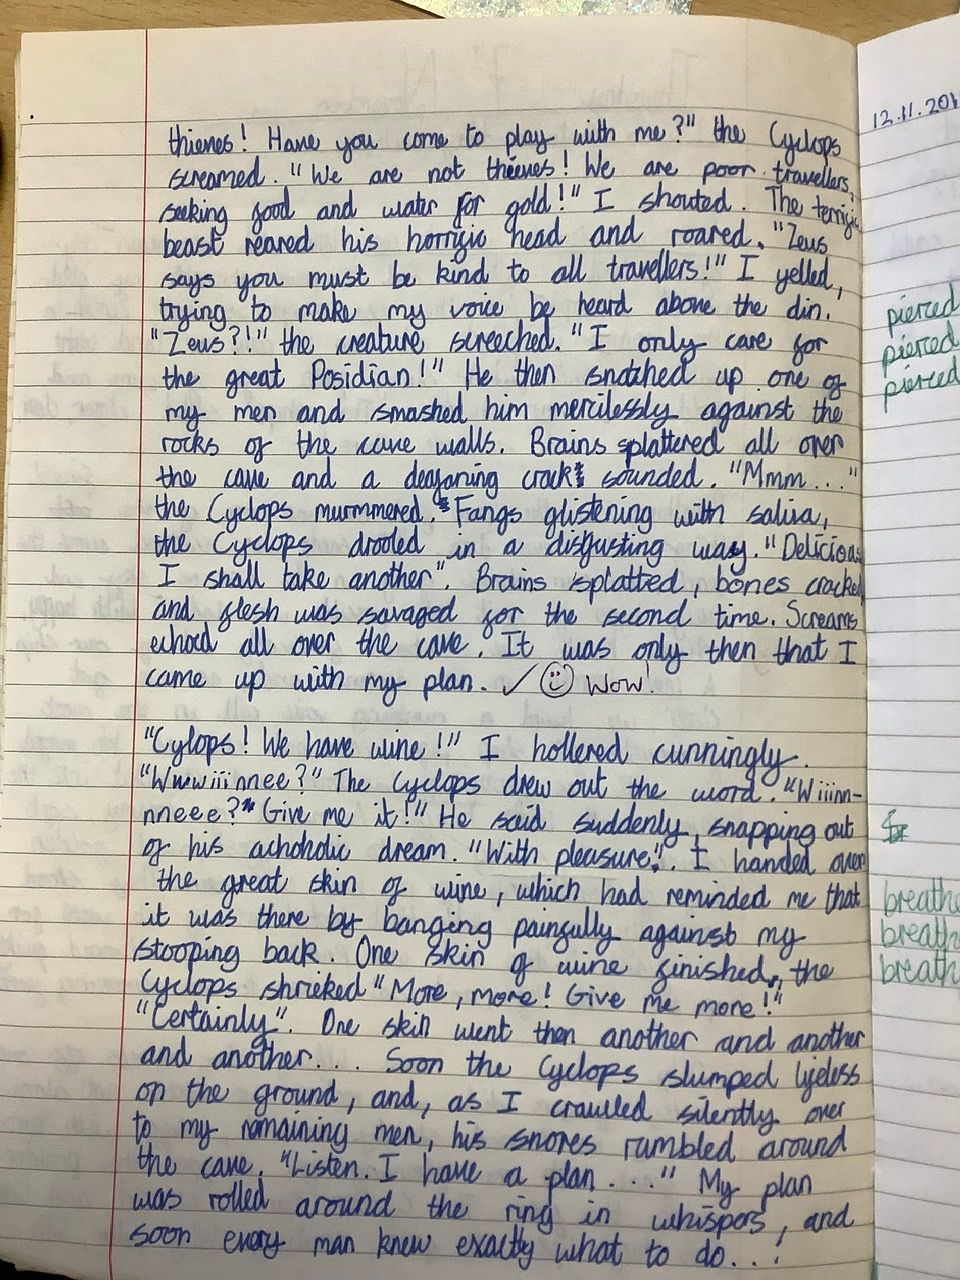 thieves! Have you come to play with me?" the Cyclops
screamed. "We are not thieves! We are poor travellers,
seeking food and water for gold!" I shouted. The terrific
beast reared his horrific head and roared. "Zeus
says you must be kind to all travellers!" I yelled,
trying to make my voice be heard above the din.
"Zeus?!" the creature screeched. "I only care for
the great Posidian!" He then snatched up one of
my men and smashed him mercilessly against the
rocks of the cave walls. Brains splattered all over
the cave and a deafening crack sounded. "Mmm..."
the Cyclops murmmered. Fangs glistening with saliva,
the Cyclops drooled in a disgusting way. "Delicious
I shall take another". Brains splatted, bones cracked
and flesh was savaged for the second time. Screams
echod all over the cave. It was only then that I
came up with my plan. ✓ ☺ Wow!
"Cylops! We have wine!" I hollered cunningly.
"Wwwiiinnee?" The Cyclops drew out the word. "Wiiinn-
nneee?" Give me it!" He said suddenly, snapping out
of his achoholic dream. "With pleasure". I handed over
the great skin of wine, which had reminded me that
it was there by banging painfully against my
stooping back. One skin of wine finished, the
Cyclops shrieked "More, more! Give me more!"
"Certainly". One skin went then another and another
and another... Soon the Cyclops slumped lifeless
on the ground, and, as I crawled silently over
to my remaining men, his snores rumbled around
the cave. "Listen. I have a plan...." My plan
was rolled around the ring in whispers, and
soon every man knew exactly what to do...!
12.11.201
pierced
pierced
pierced
breathe
breath
breath